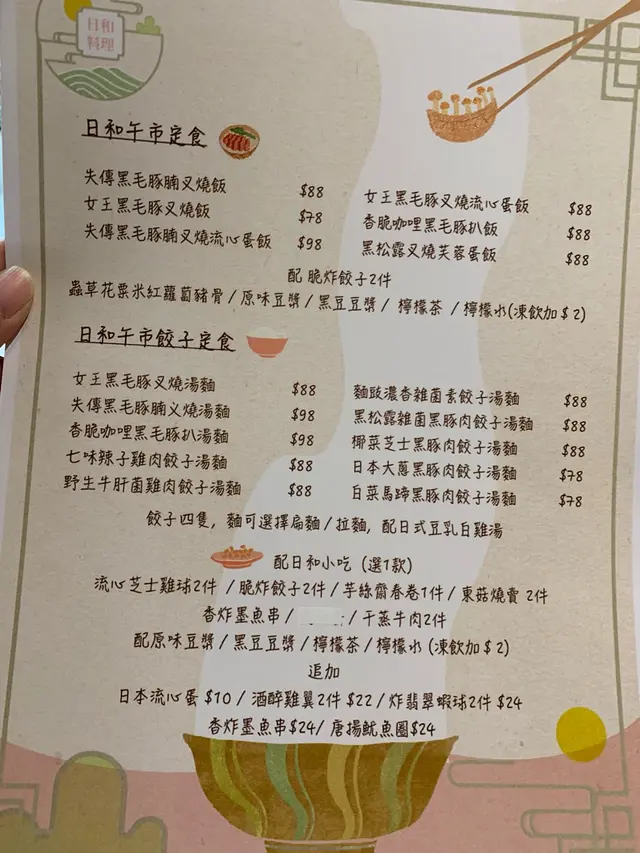 日和
料理
日和午市定食
失傳黑毛豚腩叉燒飯 $88
女王黑毛豚叉燒飯 $78
失傳黑毛豚腩叉燒流心蛋飯 $98
女王黑毛豚叉燒流心蛋飯 $88
香脆咖哩黑毛豚扒飯 $88
黑松露叉燒芙蓉蛋飯 $88
配 脆炸餃子2件
蟲草花粟米紅蘿蔔豬骨/原味豆漿/黑豆豆漿/ 檸檬茶 /檸檬水(凍飲加$2)
日和午市餃子定食
女王黑毛豚叉燒湯麵 $88
失傳黑毛豚腩义燒湯麵 $98
香脆咖哩黑毛豚扒湯麵 $98
七味辣子雞肉餃子湯麵 $88
野生牛肝菌雞肉餃子湯麵 $88
麵豉濃香雜菌素餃子湯麵 $88
黑松露雜菌黑豚肉餃子湯麵 $88
椰菜芝士黑豚肉餃子湯麵 $88
日本大蔥黑豚肉餃子湯麵 $78
白菜馬蹄黑豚肉餃子湯麵 $78
餃子四隻, 麵可選擇扁麵/拉麵, 配日式豆乳白雞湯
配日和小吃 (選1款)
流心芝士雞球2件 /脆炸餃子2件/芋絲齋春卷1件/東菇燒賣 2件
香炸墨魚串/ /干蒸牛肉2件
配原味豆漿/黑豆豆漿/檸檬茶/檸檬水 (凍飲加$2)
追加
日本流心蛋 $10/ 酒醉雞翼2件 $22/ 炸翡翠蝦球2件 $24
香炸墨魚串$24/ 唐揚魷魚圈$24